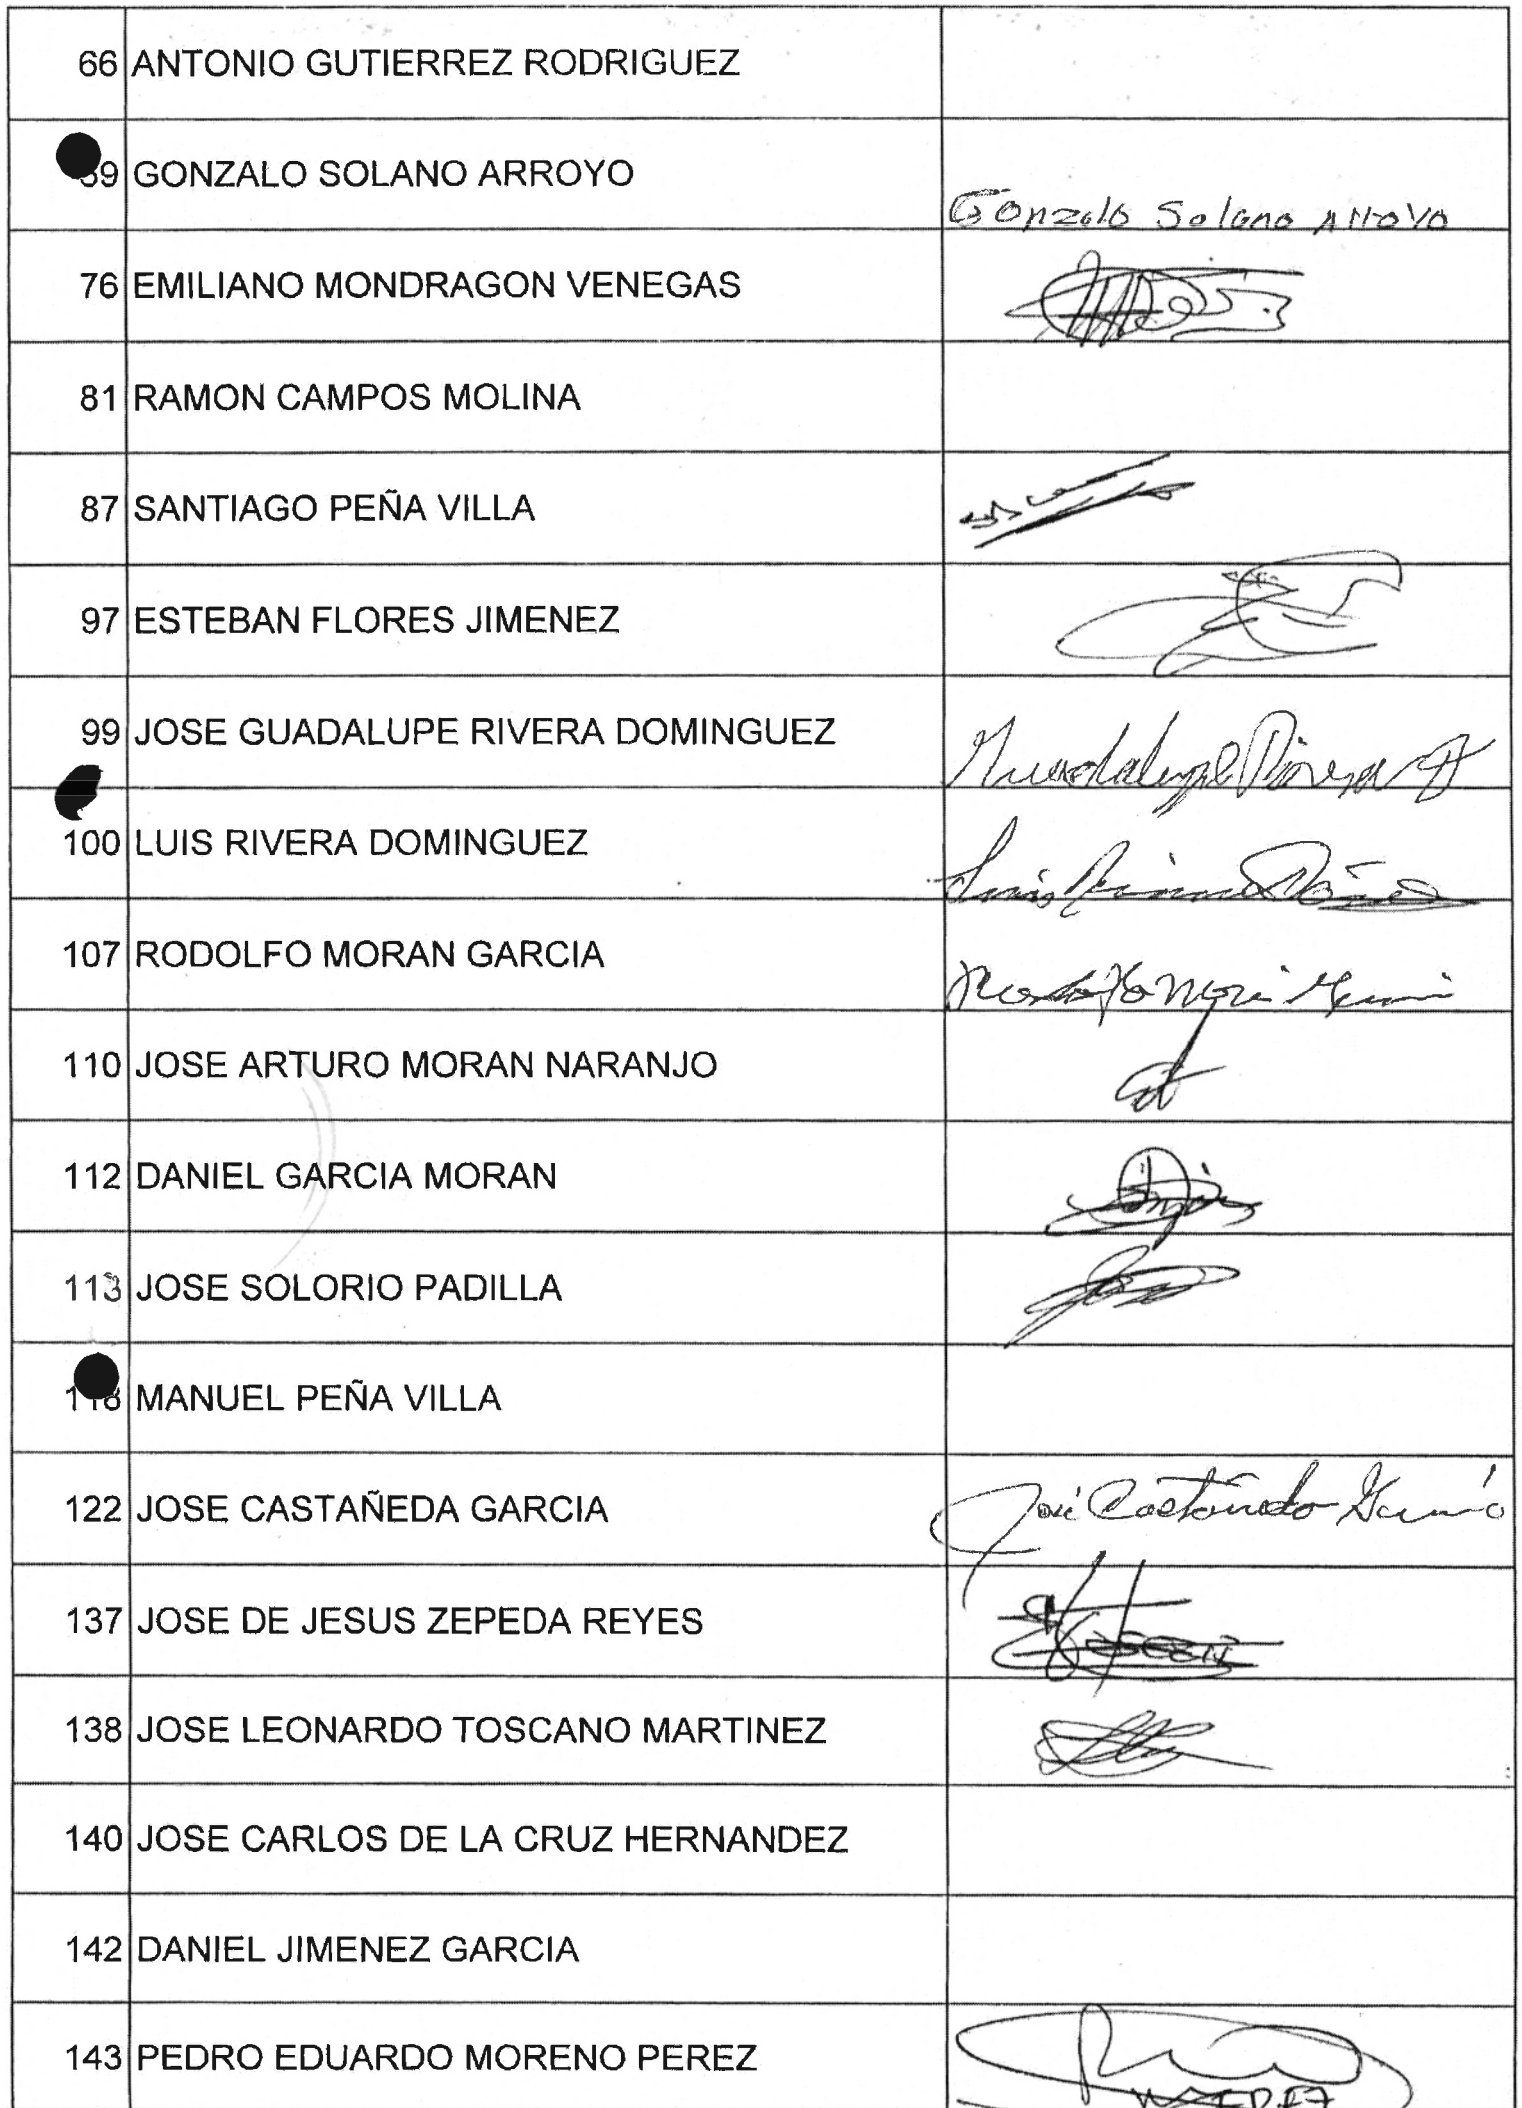 66 ANTONIO GUTIERREZ RODRIGUEZ
GONZALO SOLANO ARROYO
Gonzalo Solano Arroyo
76 EMILIANO MONDRAGON VENEGAS
81 RAMON CAMPOS MOLINA
87 SANTIAGO PEÑA VILLA
97 ESTEBAN FLORES JIMENEZ
99 JOSE GUADALUPE RIVERA DOMINGUEZ
Guadalupe Rivera D
100 LUIS RIVERA DOMINGUEZ
Luis Rivera
107 RODOLFO MORAN GARCIA
Rodolfo Moran Garcia
110 JOSE ARTURO MORAN NARANJO
112 DANIEL GARCIA MORAN
113 JOSE SOLORIO PADILLA
118 MANUEL PEÑA VILLA
122 JOSE CASTAÑEDA GARCIA
José Castañeda Garcia
137 JOSE DE JESUS ZEPEDA REYES
138 JOSE LEONARDO TOSCANO MARTINEZ
140 JOSE CARLOS DE LA CRUZ HERNANDEZ
142 DANIEL JIMENEZ GARCIA
143 PEDRO EDUARDO MORENO PEREZ